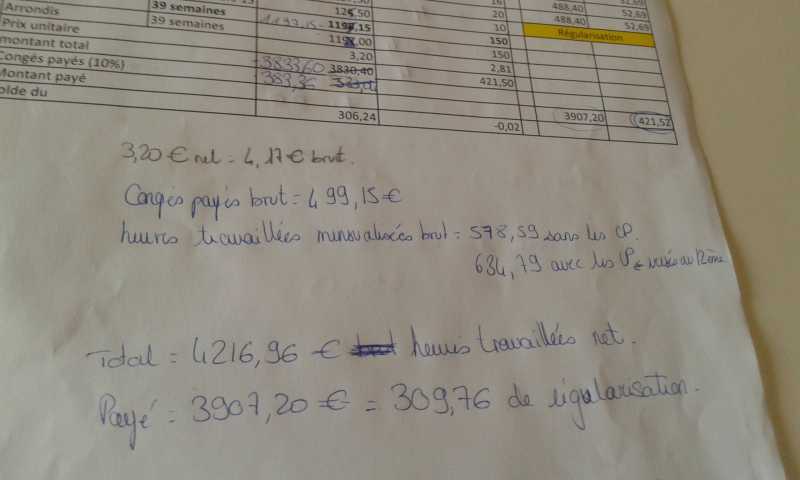 16
52,69
Arrondis 39 semaines 125,50 20 488,40 52,69
Prix unitaire 39 semaines 1197,15 1197,15 10 488,40 52,69
montant total 1198,00 150 Régularisation
Congés payés (10%) 3,20 150
Montant payé 3833,60 3830,40 2,81
olde du 383,36 421,50
306,24 -0,02 3907,20 421,52
3,20 € net = 4,17 € brut.
Congés payés brut = 499,15 €
heures travaillées mensualisées brut = 578,59 sans les CP.
634,79 avec les CP versés au 12ème
Total = 4216,96 € heures travaillées net.
Payé = 3907,20 € = 309,76 de régularisation.